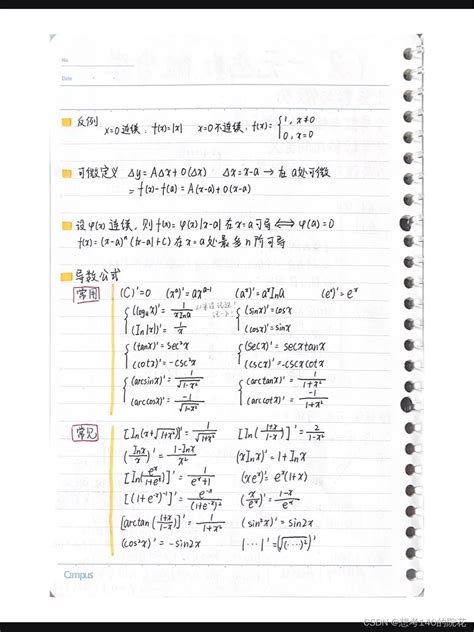 No.
Date
反例
x=0连续, f(x)=|x|  x=0不连续, f(x)={1, x≠0
0, x=0
可微定义 Δy=AΔx+o(Δx) Δx=x-a → 在a处可微
=f(x)-f(a)=A(x-a)+o(x-a)
设φ(x)连续, 则f(x)=φ(x)|x-a|在x=a可导⟺φ(a)=0
f(x)=(x-a)ⁿ(|x-a|+C)在x=a处最多n阶可导
导数公式
常用 (C)'=0 (xᵃ)'=axᵃ⁻¹ (aˣ)'=aˣlna (eˣ)'=eˣ
(logₐx)'=1/(xlna) (sinx)'=cosx
(ln|x|)'=1/x (cosx)'=sinx
(tanx)'=sec²x (secx)'=secxtanx
(cotx)'=-csc²x (cscx)'=-cscxcotx
(arcsinx)'=1/√(1-x²) (arctanx)'=1/(1+x²)
(arccosx)'=-1/√(1-x²) (arccotx)'=-1/(1+x²)
常见 [ln(x+√(1+x²))]'=1/√(1+x²) [ln(1+x/1-x)]'=2/(1-x²)
(lnx/x)'=(1-lnx)/x² (xlnx)'=1+lnx
[ln(eˣ/(1+eˣ))]'=1/(eˣ+1) (xeˣ)'=eˣ(1+x)
[(1+e⁻ˣ)⁻¹]'=e⁻ˣ/(1+e⁻ˣ)² (x/eˣ)'=(1-x)/eˣ
[arctan(1+x/1-x)]'=1/(1+x²) (sin²x)'=sin2x
(cos²x)'=-sin2x |…|'=(√(…)²)'
Campus
CSDN @想考140的院花